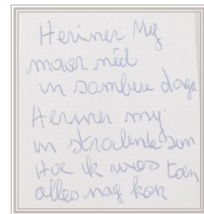 Heriner My
maar niet
in sombere dage
Heriner my
in stralende zon
Hoe ik was toen
alles nog kon